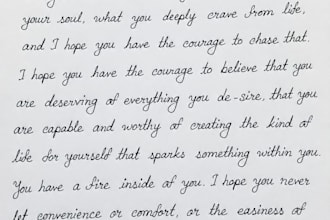 your soul, what you deeply crave from life,
and I hope you have the courage to chase that.
I hope you have the courage to believe that you
are deserving of everything you de-sire, that you
are capable and worthy of creating the kind of
life for yourself that sparks something within you.
You have a fire inside of you. I hope you never
let convenience or comfort, or the easiness of